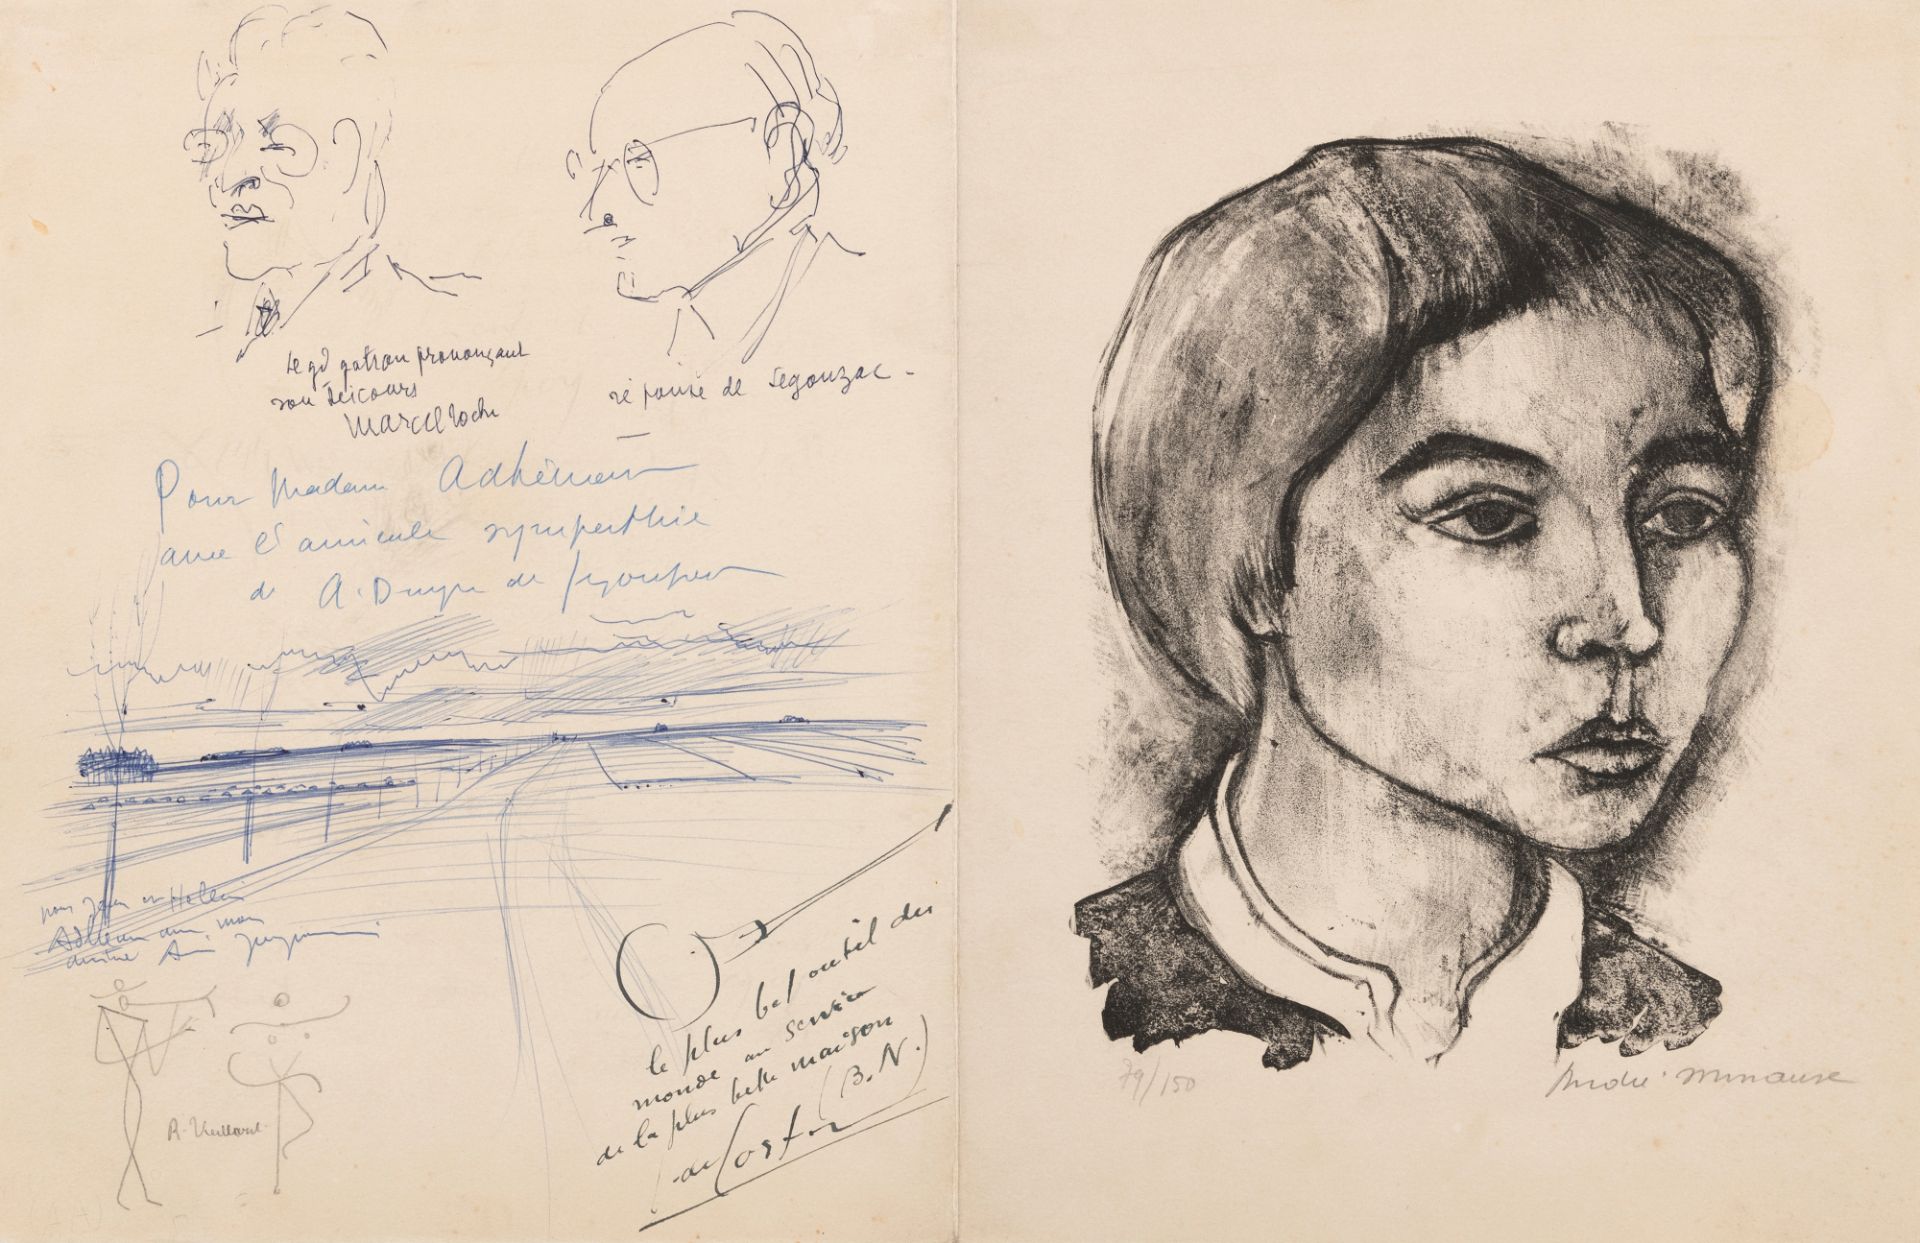 le gd patron prononçant
son discours
Marcel Roche
réponse de Segonzac -
Pour Madame Adhémar
avec l'amicale sympathie
de A. Dunoyer de Segonzac
pour Jean et Hélène
Adhémar avec mon
R. Vieillard
le plus bel outil du
monde au service
de la plus belle maison
(B.N.)
79/150
André Minaux